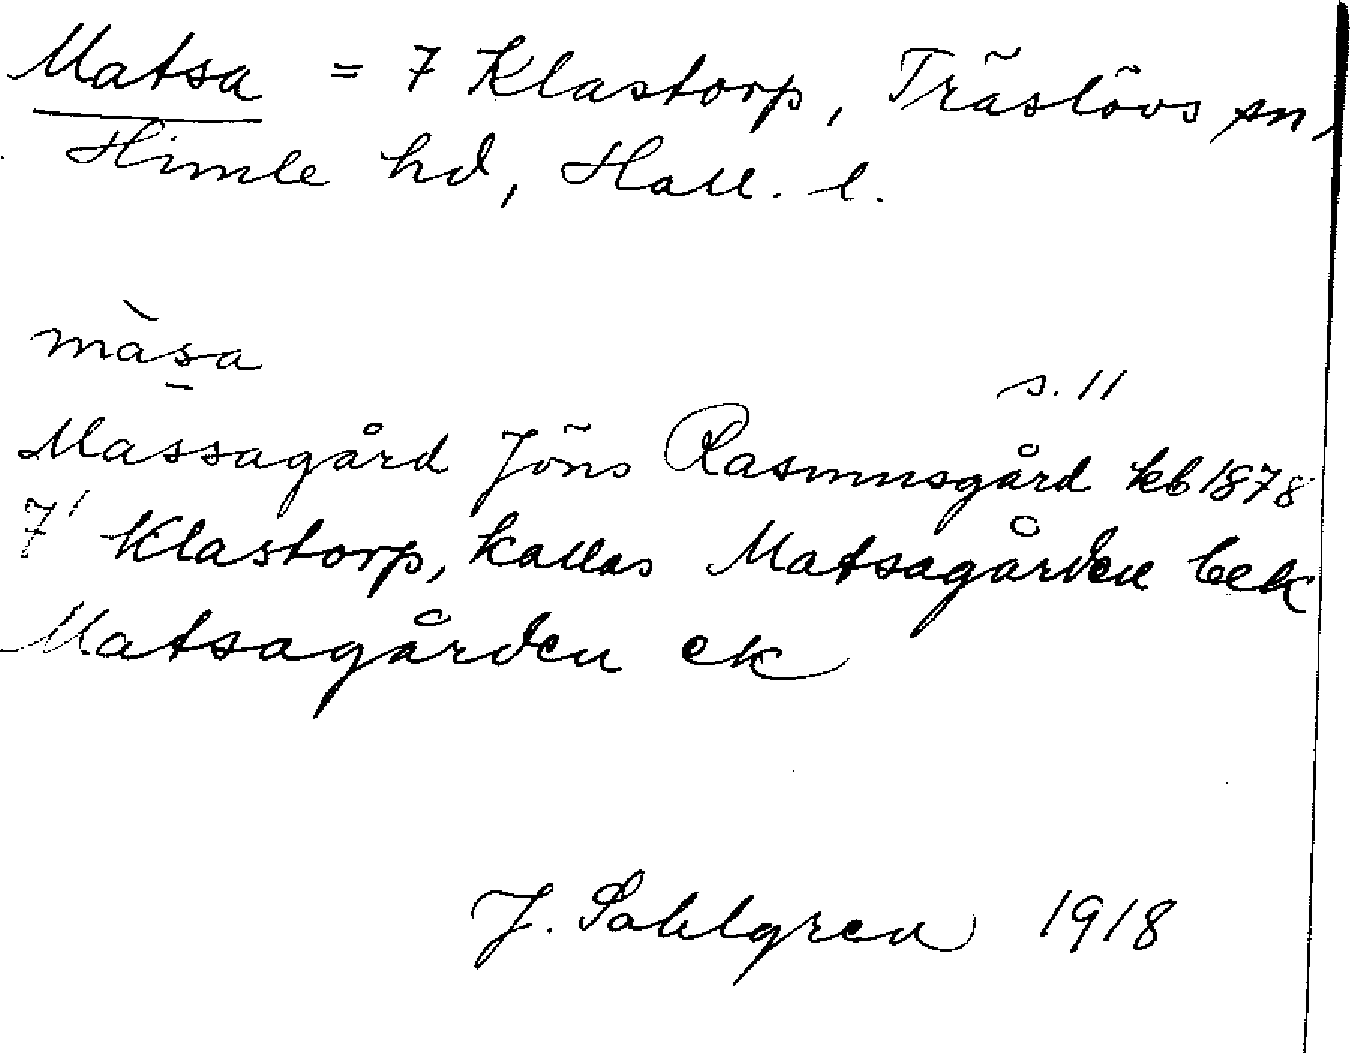 Matsa = 7 Klastorp, Träslövs sn,
Himle hd, Hall. l.
màs̠a
s. 11
Massagård Jöns Rasmusgård kb 1878
7' Klastorp, kallas Matsagården bek
Matsagården ek
J. Sahlgren 1918